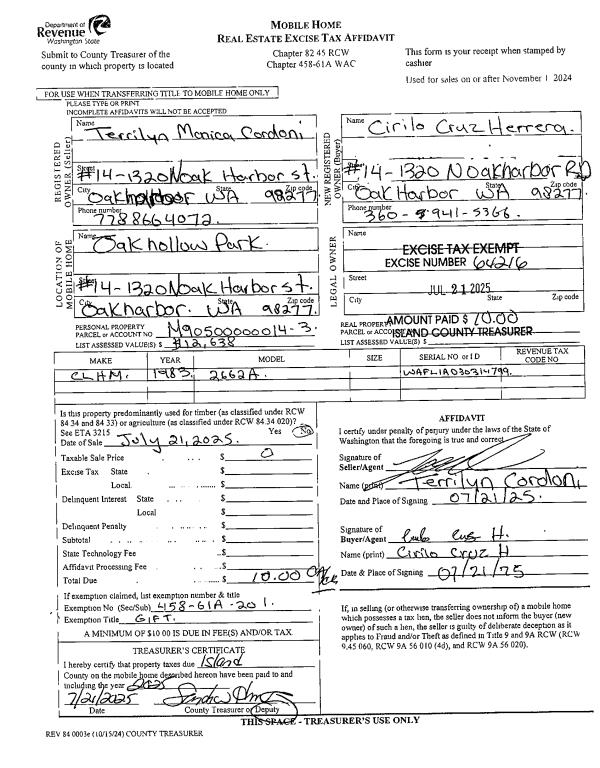 Department of
Revenue
Washington State
Submit to County Treasurer of the
county in which property is located
MOBILE HOME
REAL ESTATE EXCISE TAX AFFIDAVIT
Chapter 82 45 RCW
Chapter 458-61A WAC
This form is your receipt when stamped by
cashier
Used for sales on or after November 1 2024
FOR USE WHEN TRANSFERRING TITLE TO MOBILE HOME ONLY
PLEASE TYPE OR PRINT
INCOMPLETE AFFIDAVITS WILL NOT BE ACCEPTED
REGISTERED OWNER (Seller)
Name
Terrilyn Monica Cordoni
Street
#14-1320 Noak Harbor st.
City State Zip code
Oak harbor WA 98277
Phone number
7788664072
NEW REGISTERED OWNER (Buyer)
Name
Cirilo Cruz Herrera.
#14-1320 N oakharbor RD
City State Zip code
Oak Harbor WA 98277
Phone number
360-941-5366.
LOCATION OF MOBILE HOME
Name
Oak hollow Park.
Street
#14-1320 Noak Harbor st.
City State Zip code
Oakharbor. WA 98277.
LEGAL OWNER
Name
EXCISE TAX EXEMPT
EXCISE NUMBER 64216
Street
JUL 21 2025
City State Zip code
PERSONAL PROPERTY
PARCEL or ACCOUNT NO M90500000014-3
LIST ASSESSED VALUE(S) $ $12,638
REAL PROPERTY
AMOUNT PAID $ 10.00
PARCEL or ACCOUNT
ISLAND COUNTY TREASURER
LIST ASSESSED VALUE(S) $
MAKE YEAR MODEL SIZE SERIAL NO or I D REVENUE TAX CODE NO
CLHM. 1983. 2662A. WAFL1A030314799.
Is this property predominantly used for timber (as classified under RCW
84 34 and 84 33) or agriculture (as classified under RCW 84.34 020)?
See ETA 3215 Yes No
Date of Sale July 21, 2025.
Taxable Sale Price $ 0
Excise Tax State $
Local $
Delinquent Interest State $
Local $
Delinquent Penalty $
Subtotal $
State Technology Fee $
Affidavit Processing Fee $
Total Due $ 10.00
If exemption claimed, list exemption number & title
Exemption No (Sec/Sub) 458-61A-201.
Exemption Title GIFT.
A MINIMUM OF $10 00 IS DUE IN FEE(S) AND/OR TAX
TREASURER'S CERTIFICATE
I hereby certify that property taxes due Island
County on the mobile home described hereon have been paid to and
including the year 2025
7/21/2025
Date County Treasurer or Deputy
AFFIDAVIT
I certify under penalty of perjury under the laws of the State of
Washington that the foregoing is true and correct
Signature of
Seller/Agent
Name (print) Terrilyn Cordoni
Date and Place of Signing 07/21/25.
Signature of
Buyer/Agent
Name (print) Cirilo Cruz H
Date & Place of Signing 07/21/25
If, in selling (or otherwise transferring ownership of) a mobile home
which possesses a tax lien, the seller does not inform the buyer (new
owner) of such a lien, the seller is guilty of deliberate deception as it
applies to Fraud and/or Theft as defined in Title 9 and 9A RCW (RCW
9.45 060, RCW 9A 56 010 (4d), and RCW 9A 56 020).
THIS SPACE - TREASURER'S USE ONLY
REV 84 0003e (10/15/24) COUNTY TREASURER